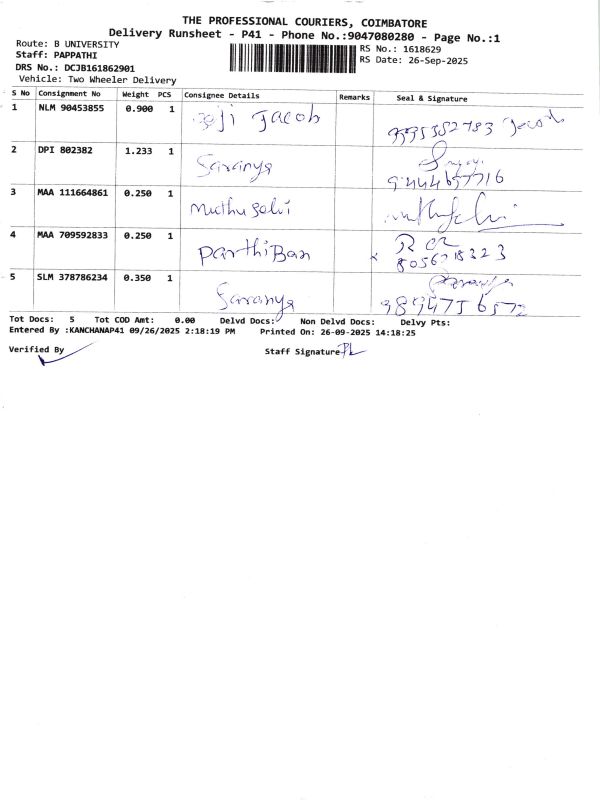 THE PROFESSIONAL COURIERS, COIMBATORE
Delivery Runsheet - P41 - Phone No.:9047080280 - Page No.:1
Route: B UNIVERSITY
RS No.: 1618629
Staff: PAPPATHI
RS Date: 26-Sep-2025
DRS No.: DCJB161862901
Vehicle: Two Wheeler Delivery
S No Consignment No Weight PCS Consignee Details Remarks Seal & Signature
1 NLM 90453855 0.900 1 Jacob
2 DPI 802382 1.233 1 Saranya
3 MAA 111664861 0.250 1 muthuselvi
4 MAA 709592833 0.250 1 ParthiBan
5 SLM 378786234 0.350 1 Saranya
Tot Docs: 5 Tot COD Amt: 0.00 Delvd Docs: Non Delvd Docs: Delvy Pts:
Entered By :KANCHANAP41 09/26/2025 2:18:19 PM Printed On: 26-09-2025 14:18:25
Verified By Staff Signature